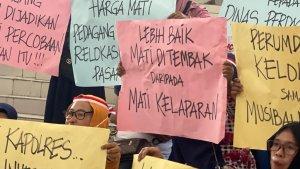 DIJADIKAN
PERCOBAAN
INI !!!
HARGA MATI
PEDAGANG
RELOKASI
PASAR
LEBIH BAIK
MATI DITEMBAK
DARIPADA
MATI KELAPARAN
DINAS
PERUMD
KELO
MUSIBA
KAPOLRES...